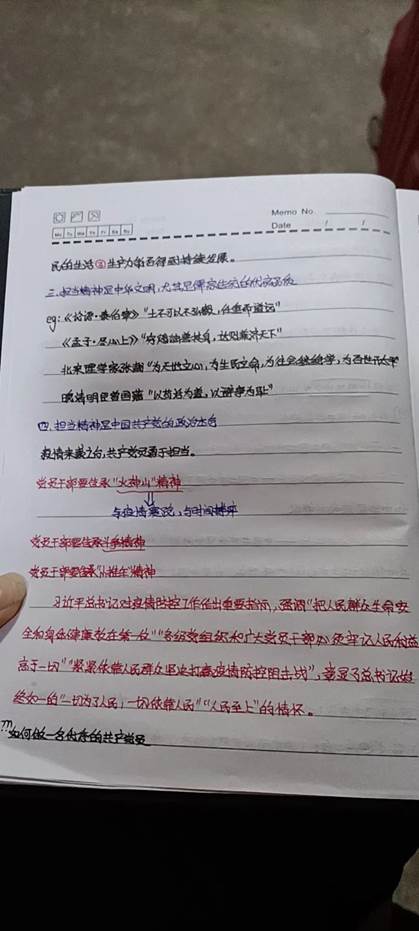 Memo No.
Date / /
Mo Tu We Th Fr Sa Su
民的生活③生产力能否得到持续发展。
三、担当精神是中华文明,尤其是儒家传统的
eg:《论语·泰伯章》"士不可以不弘毅,任重而道远"
《孟子·尽心上》"穷则独善其身,达则兼济天下"
北宋理学家张载"为天地立心,为生民立命,为往圣继绝学,为万世开太平"
晚清明臣曾国藩"以苟活为羞,以避事为耻"
四、担当精神是中国共产党的政治本色
疫情来袭之初,共产党员勇于担当。
党员干部要传承"火神山"精神
与疫情赛跑,与时间
党员干部要传承斗争精神
党员干部要 精神
习近平总书记对疫情防控工作作出重要指示,强调"把人民群众生命安
全和身体健康放在第一位""各级党组织和广大党员干部必须牢记人民利益
高于一切""紧紧依靠人民群众坚决打赢疫情防控阻击战",彰显了总书记始
终如一的"一切为了人民,一切依靠人民""人民至上"的情怀。
???如何做一名优秀的共产党员